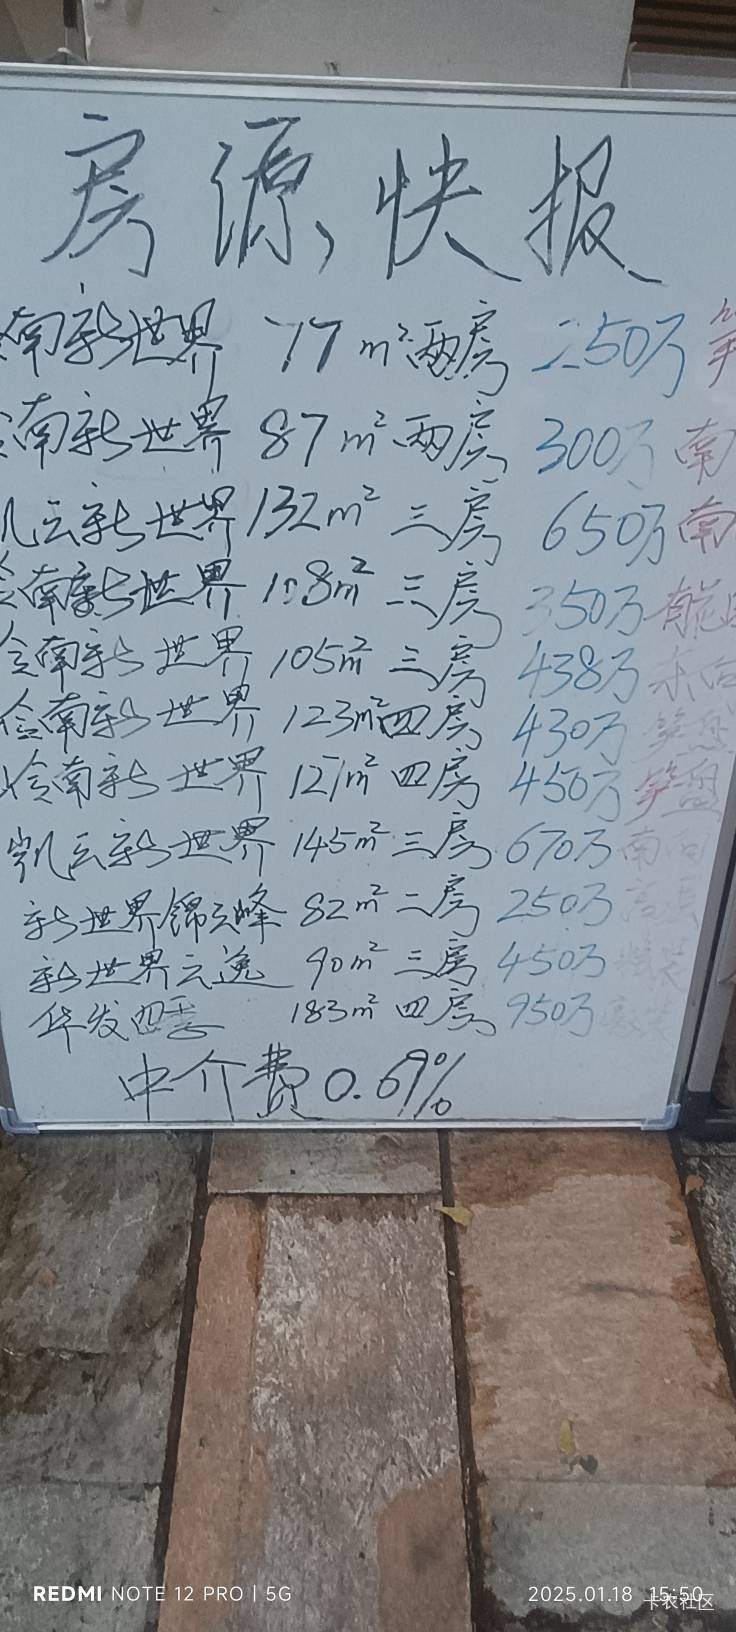 房源快报
南新世界 77m²两房 250万 笋
南新世界 87m²两房 300万 南
凯云新世界 132m² 三房 650万 南
岭南新世界 108m² 三房 350万
岭南新世界 105m² 三房 438万 东向
岭南新世界 123m² 四房 430万 笋盘
岭南新世界 127m² 四房 450万 笋盘
凯云新世界 145m² 三房 670万 南向
新世界锦云峰 82m² 二房 250万
新世界云逸 90m² 三房 450万 精装
华发四季 183m² 四房 950万
中介费0.69%
REDMI NOTE 12 PRO | 5G
2025.01.18 15:50
卡农社区